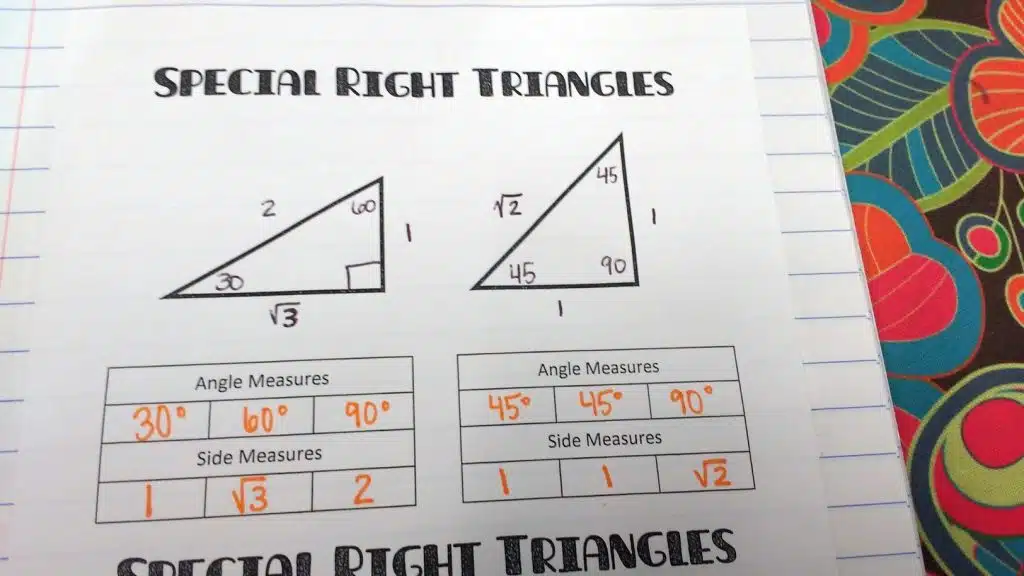 SPECIAL RIGHT TRIANGLES
2
60
1
30
√3
45
√2
1
45
90
1
Angle Measures
30° 60° 90°
Side Measures
1 √3 2
Angle Measures
45° 45° 90°
Side Measures
1 1 √2
SPECIAL RIGHT TRIANGLES